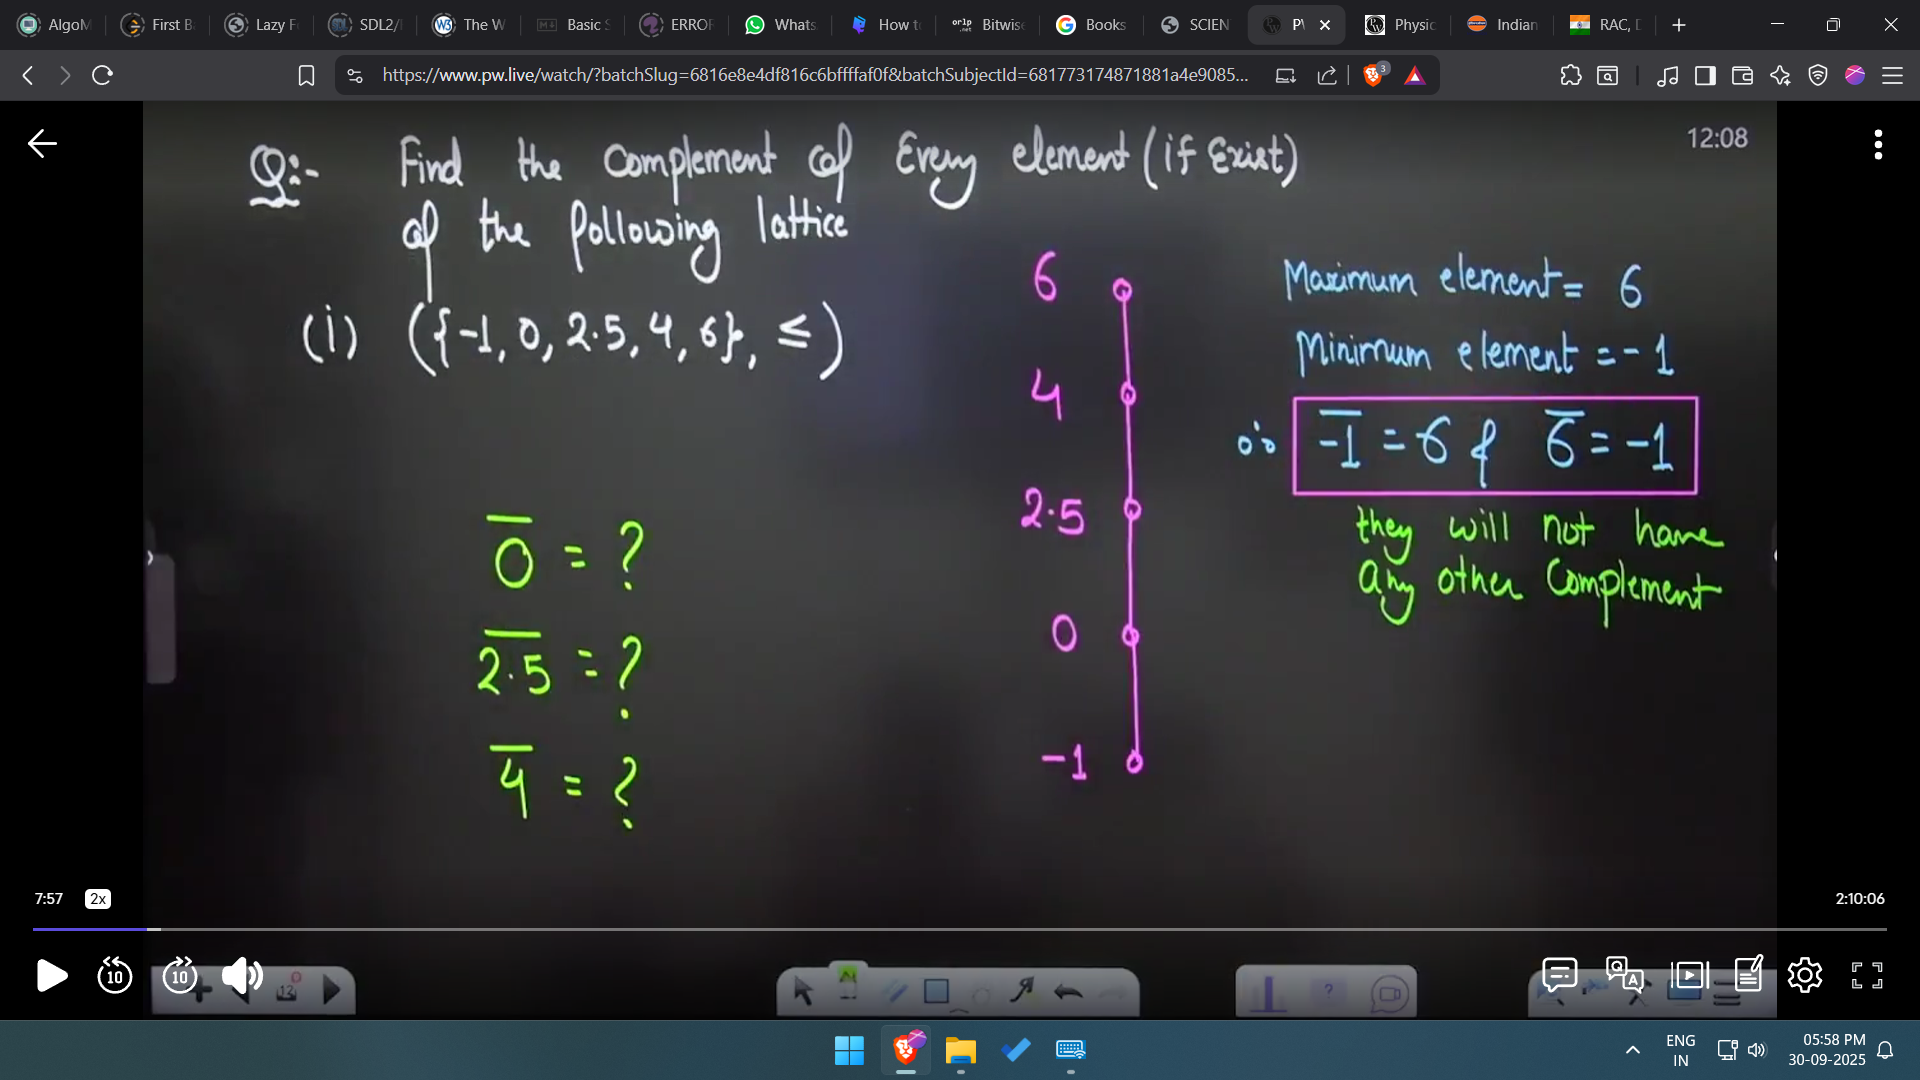 AlgoM
First B
Lazy F
SDL2/
The W
Basic S
ERROR
Whats
How t
Bitwise
Books
SCIEN
PW
Physic
Indian
RAC, D
https://www.pw.live/watch/?batchSlug=6816e8e4df816c6bffffaf0f&batchSubjectId=681773174871881a4e9085...
3
12:08
Q:- Find the Complement of Every element (if Exist)
of the following lattice
(i) ({-1, 0, 2.5, 4, 6}, ≤)
6
4
2.5
0
-1
Maximum element = 6
Minimum element = -1
∴ -1̅ = 6 & 6̅ = -1
they will not have
Any other Complement
0̅ = ?
2.5̅ = ?
4̅ = ?
7:57 2x
2:10:06
10 10
ENG
IN
05:58 PM
30-09-2025